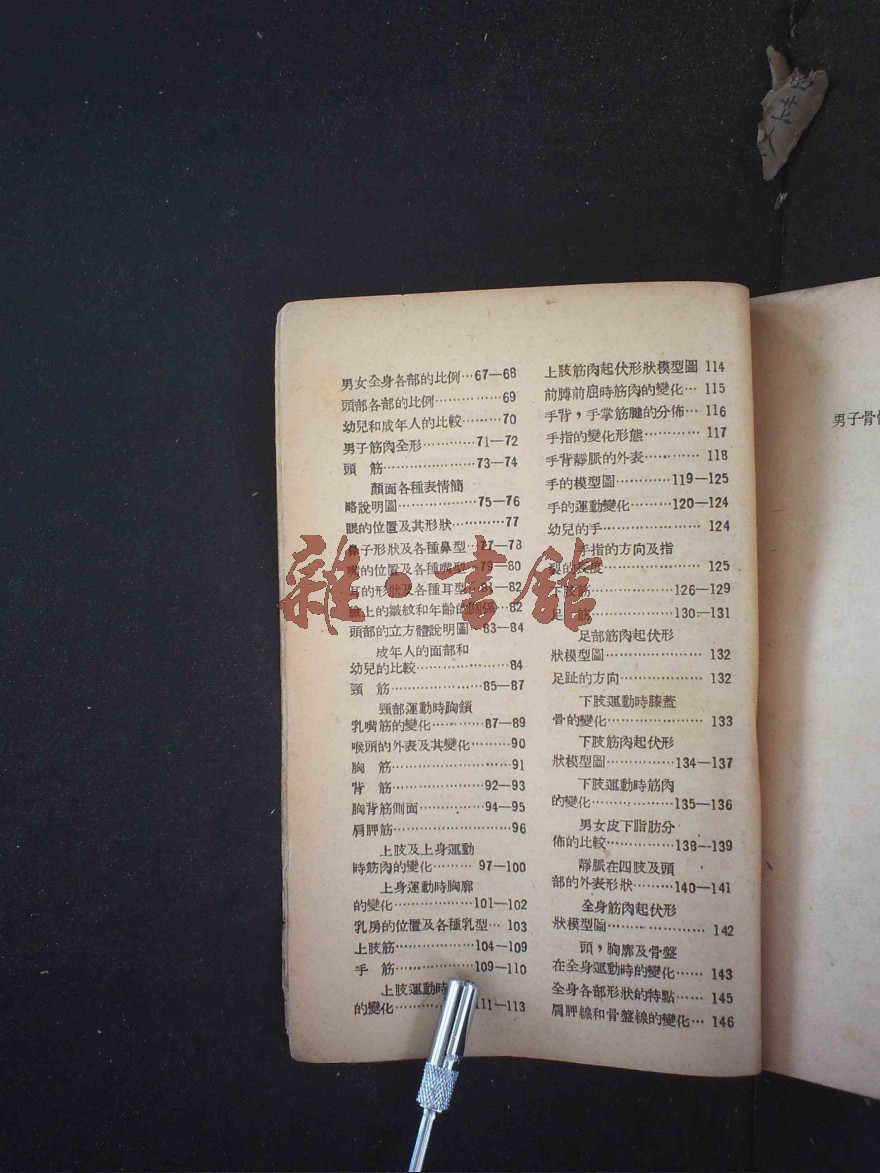 男女全身各部的比例…67—68
頭部各部的比例……………69
幼兒和成年人的比較………70
男子筋肉全形…………71—72
頭　筋…………………73—74
顏面各種表情簡
略說明圖………………75—76
眼的位置及其形狀…………77
鼻子形狀及各種鼻型…77—78
嘴的位置及各種嘴型…79—80
耳的形狀及各種耳型…81—82
臉上的皺紋和年齡的關係…82
頭部的立方體說明圖…83—84
成年人的面部和
幼兒的比較…………………84
頸　筋…………………85—87
頸部運動時胸鎖
乳嘴筋的變化…………87—89
喉頭的外表及其變化………90
胸　筋………………………91
背　筋…………………92—93
胸背筋側面……………94—95
肩胛筋………………………96
上肢及上身運動
時筋肉的變化………97—100
上身運動時胸廓
的變化………………101—102
乳房的位置及各種乳型…103
上肢筋………………104—109
手　筋………………109—110
上肢運動時
的變化……………111—113
上肢筋肉起伏形狀模型圖 114
前膊前屈時筋肉的變化…115
手背，手掌筋腱的分佈…116
手指的變化形態…………117
手背靜脈的外表…………118
手的模型圖…………119—125
手的運動變化………120—124
幼兒的手…………………124
手指的方向及指
的長度……………125
下肢筋………………126—129
足　筋………………130—131
足部筋肉起伏形
狀模型圖…………………132
足趾的方向………………132
下肢運動時膝蓋
骨的變化…………………133
下肢筋肉起伏形
狀模型圖……………134—137
下肢運動時筋肉
的變化………………135—136
男女皮下脂肪分
佈的比較……………138—139
靜脈在四肢及頭
部的外表形狀………140—141
全身筋肉起伏形
狀模型圖…………………142
頭，胸廓及骨盤
在全身運動時的變化……143
全身各部形狀的特點……145
肩胛線和骨盤線的變化…146
男子骨
雜·書館